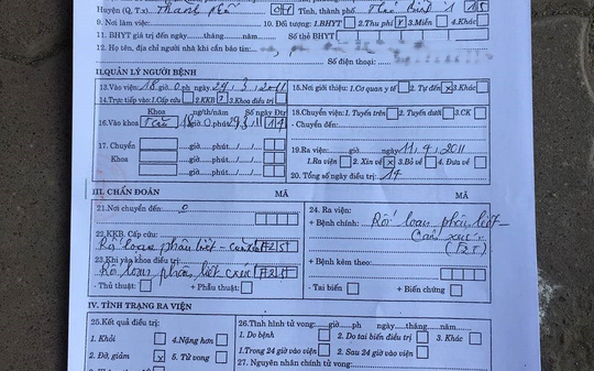 Huyện (Q. Tx) Thanh phố Tỉnh, thành phố
9. Nơi làm việc: 10. Đối tượng: 1.BHYT 2.Thu phí 3.Miễn 4.Khác
11. BHYT giá trị đến ngày tháng năm Số thẻ BHYT
12. Họ tên, địa chỉ người nhà khi cần báo tin:
Số điện thoại:
II.QUẢN LÝ NGƯỜI BỆNH
13.Vào viện: 18 giờ 0 ph ngày 29. 3. 2011
14.Trực tiếp vào: 1.Cấp cứu 2.KKB 3.Khoa điều trị
15.Nơi giới thiệu: 1.Cơ quan y tế 2.Tự đến x 3.Khác
ng/th/năm Số ngày Đtr
16.Vào khoa 18 giờ 0 phút 29/3/11 14
17. Chuyển giờ phút / /
Khoa giờ phút / /
giờ phút / /
18.Chuyển viện: 1.Tuyến trên 2.Tuyến dưới 3.CK
- Chuyển đến:
19.Ra viện: giờ ngày 11. 4. 2011
1.Ra viện 2.Xin về x 3.Bỏ về 4.Đưa về
20. Tổng số ngày điều trị: 14
III. CHẨN ĐOÁN MÃ MÃ
21.Nơi chuyển đến: 0
22.KKB. Cấp cứu:
Rối loạn phân liệt - cảm xúc F25
23.Khi vào khoa điều trị
Rối loạn phân liệt cxúc F25
- Thủ thuật: + Phẫu thuật:
24. Ra viện:
+ Bệnh chính: Rối loạn phân liệt -
Cảm xúc
(F25)
+ Bệnh kèm theo:
- Tai biến + Biến chứng
IV. TÌNH TRẠNG RA VIỆN
25.Kết quả điều trị:
1. Khỏi 4.Nặng hơn
2. Đỡ, giảm x 5. Tử vong
26.Tình hình tử vong: giờ ph ngày tháng năm
1.Do bệnh 2. Do tai biến điều trị 3. Khác
1.Trong 24 giờ vào viện 2. Sau 24 giờ vào viện
27. Nguyên nhân chính tử vong: